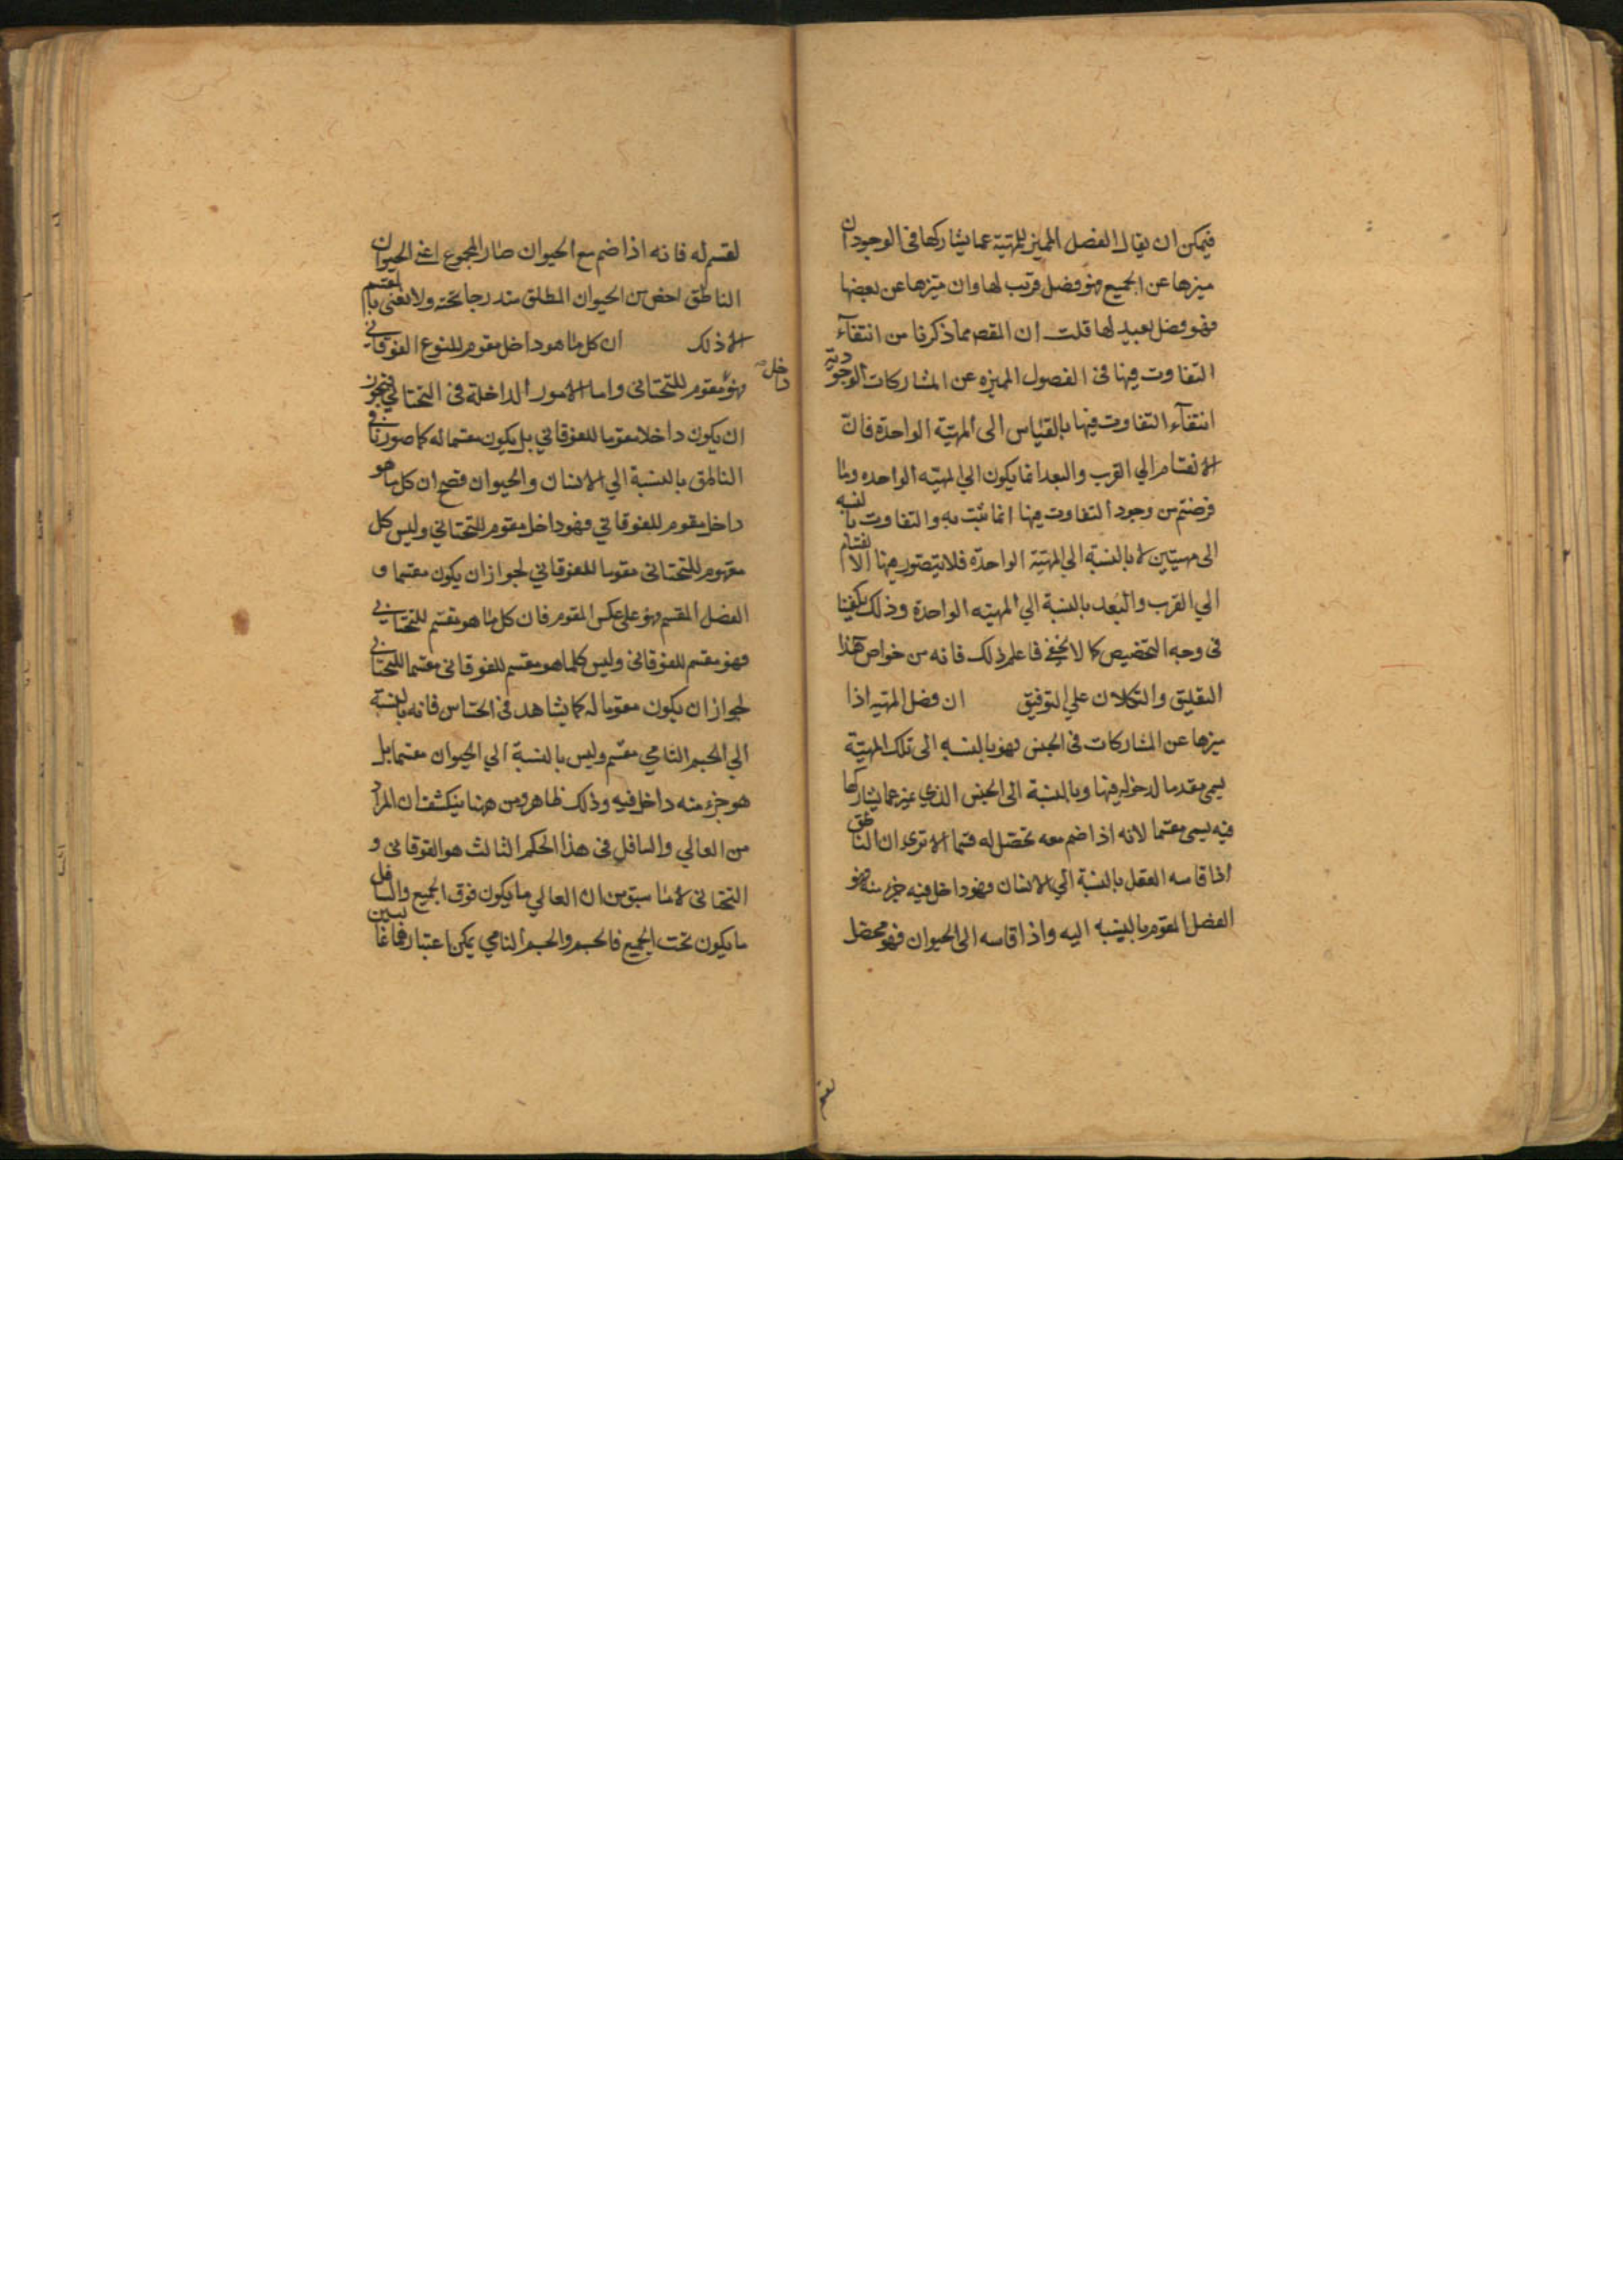 فيمكن ان يقال الفصل المميز للمهية عما يشاركها فى الوجود ان
ميزها عن الجميع فهو فصل قريب لها وان ميزها عن بعضها
فهو فصل بعيد لها قلت ان المقص مما ذكرنا من انتفآء
التفاوت فيها فى الفصول المميزه عن المشاركات الوجودية
انتفآء التفاوت فيها بالقياس الى المهيّة الواحدة فانّ
الانقسام الي القرب والبعد انما يكون الي المهيّه الواحده وما
فرضتم من وجود التفاوت فيها انما ثبت به والتفاوت بالنسبه
الى مهيتين لا بالنسبة الي المهيّة الواحدة فلا يتصور فيها الانقسام
الي القرب والبعد بالنسبة الي المهيّه الواحدة وذلك يكفينا
فى وجه التخصيص كما لا يخفى فاعلم ذلك فانه من خواص هذا
التعليق والتكلان علي التوفيق ان فصل المهيّه اذا
ميزها عن المشاركات فى الجنس فهو بالنسبه الى تلك المهيّة
يسمى مقوما لدخوله فيها وبالنسبة الى الجنس الذي يميز عما يشاركها
فيه يسمى مقسما لانه اذا ضم معه تحصّل له قسما الا ترى ان الناطق
اذا قاسه العقل بالنسبة الي الانسان فهو داخل فيه جزء منه فهو
الفصل المقوم بالنسبه اليه واذا قاسه الى الحيوان فهو محصل
لقسم
لقسم له فانه اذا ضم مع الحيوان صار المجموع اعني الحيوان
الناطق اخص من الحيوان المطلق مندرجا تحته ولا نعنى بالمقسم
الا ذلك ان كل ما هو داخل مقوم للنوع الفوقاني
فهو داخل مقوم للتحتانى واما الامور الداخلة فى التحتاني فيجوز
ان يكون داخلا مقوما للفوقاني بل يكون مقسما له كما صورنا في
الناطق بالنسبة الي الانسان والحيوان فصح ان كل ما هو
داخل مقوم للفوقاني فهو داخل مقوم للتحتاني وليس كل
مقوم للتحتانى مقوما للفوقاني لجواز ان يكون مقسما و
الفصل المقسم فهو على عكس المقوم فان كل ما هو مقسم للتحتاني
فهو مقسم للفوقانى وليس كلما هو مقسم للفوقانى مقسما للتحتاني
لجواز ان يكون مقوما له كما يشاهد فى الحساس فانه بالنسبة
الي الجسم النامي مقسم وليس بالنسبة الي الحيوان مقسما بل
هو جزء منه داخل فيه وذلك ظاهر ومن ههنا ينكشف ان المراد
من العالي والسافل فى هذا الحكم الثالث هو الفوقانى و
التحتانى لا ما سبق من ان العالي ما يكون فوق الجميع والسافل
ما يكون تحت الجميع فالجسم والجسم النامي يمكن اعتبارهما